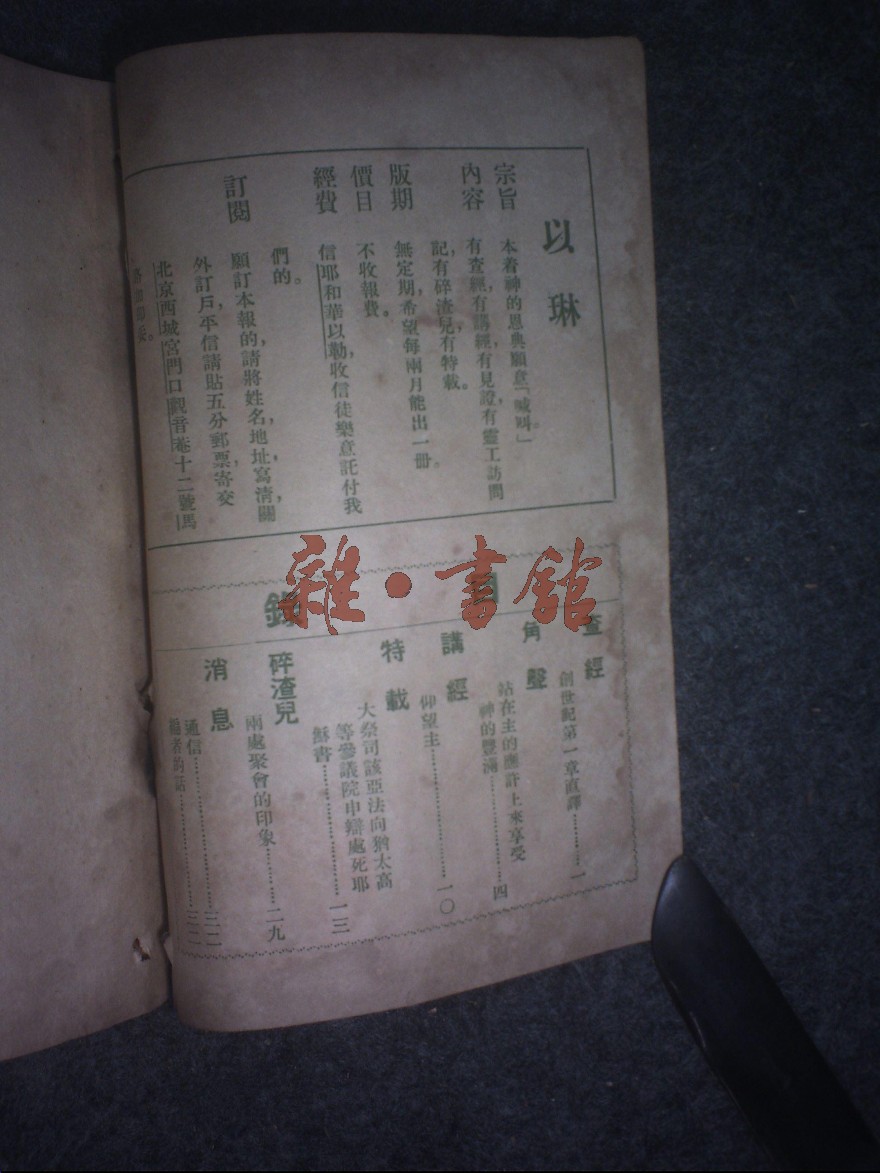 以琳
宗旨 本着神的恩典願意「喊叫」。
內容 有查經,有講經,有見證,有靈工訪問
記,有碎渣兒,有特載。
版期 無定期,希望每兩月能出一冊。
價目 不收報費。
經費 信耶和華以勒,收信徒樂意託付我
們的。
訂閱 願訂本報的,請將姓名,地址,寫清,關
外訂戶,平信請貼五分郵票,寄交
北京西城宮門口觀音菴十二號馬
。
目錄
查經
創世紀第一章直譯…………一
角聲
站在主的應許上來享受
神的豐滿…………四
講經
仰望主…………一〇
特載
大祭司該亞法向猶太高
等參議院申辯處死耶
穌書…………一三
碎渣兒
兩處聚會的印象…………二九
消息
通信…………三二
編者的話…………三二
雜·書館